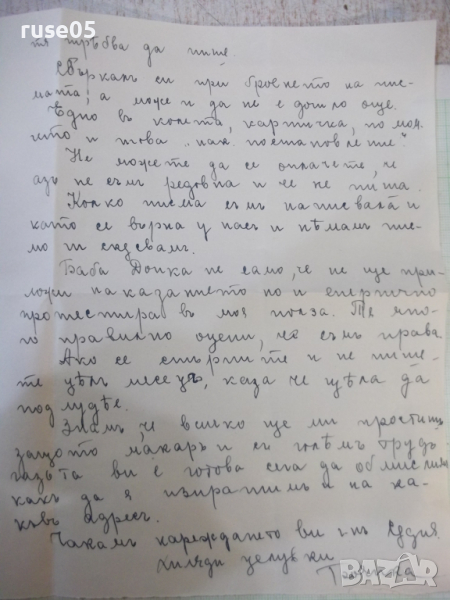 ruse05
тѣ трѣбва да пише.
Сбъркалъ си при броенето на пис-
мата, а може и да не е дошло още.
Едно въ колета, картичка, по моя-
та и това „нак. постановление".
Не можете да се оплачете, че
азъ не съмъ редовна и че не пиша.
Колко писма съмъ написвала и
като се върна у насъ и нѣмамъ пис-
мо
Баба Донка не само, че не ще при-
ложи наказанието но и енергично
протестира въ моя полза. Тя мно-
го правилно оцени, че съмъ права.
Ако се сърдите и не пише-
те цѣлъ месецъ, каза че щѣла да
подлудѣе.
Знамъ, че всичко ще ми простишъ
защото макаръ и съ голѣмъ трудъ
ви е готова сега да обмислимъ
какъ да я изпратимъ и на ка-
къвъ адресъ.
Чакамъ нареждането ви
хиляди целувки
BAZAR